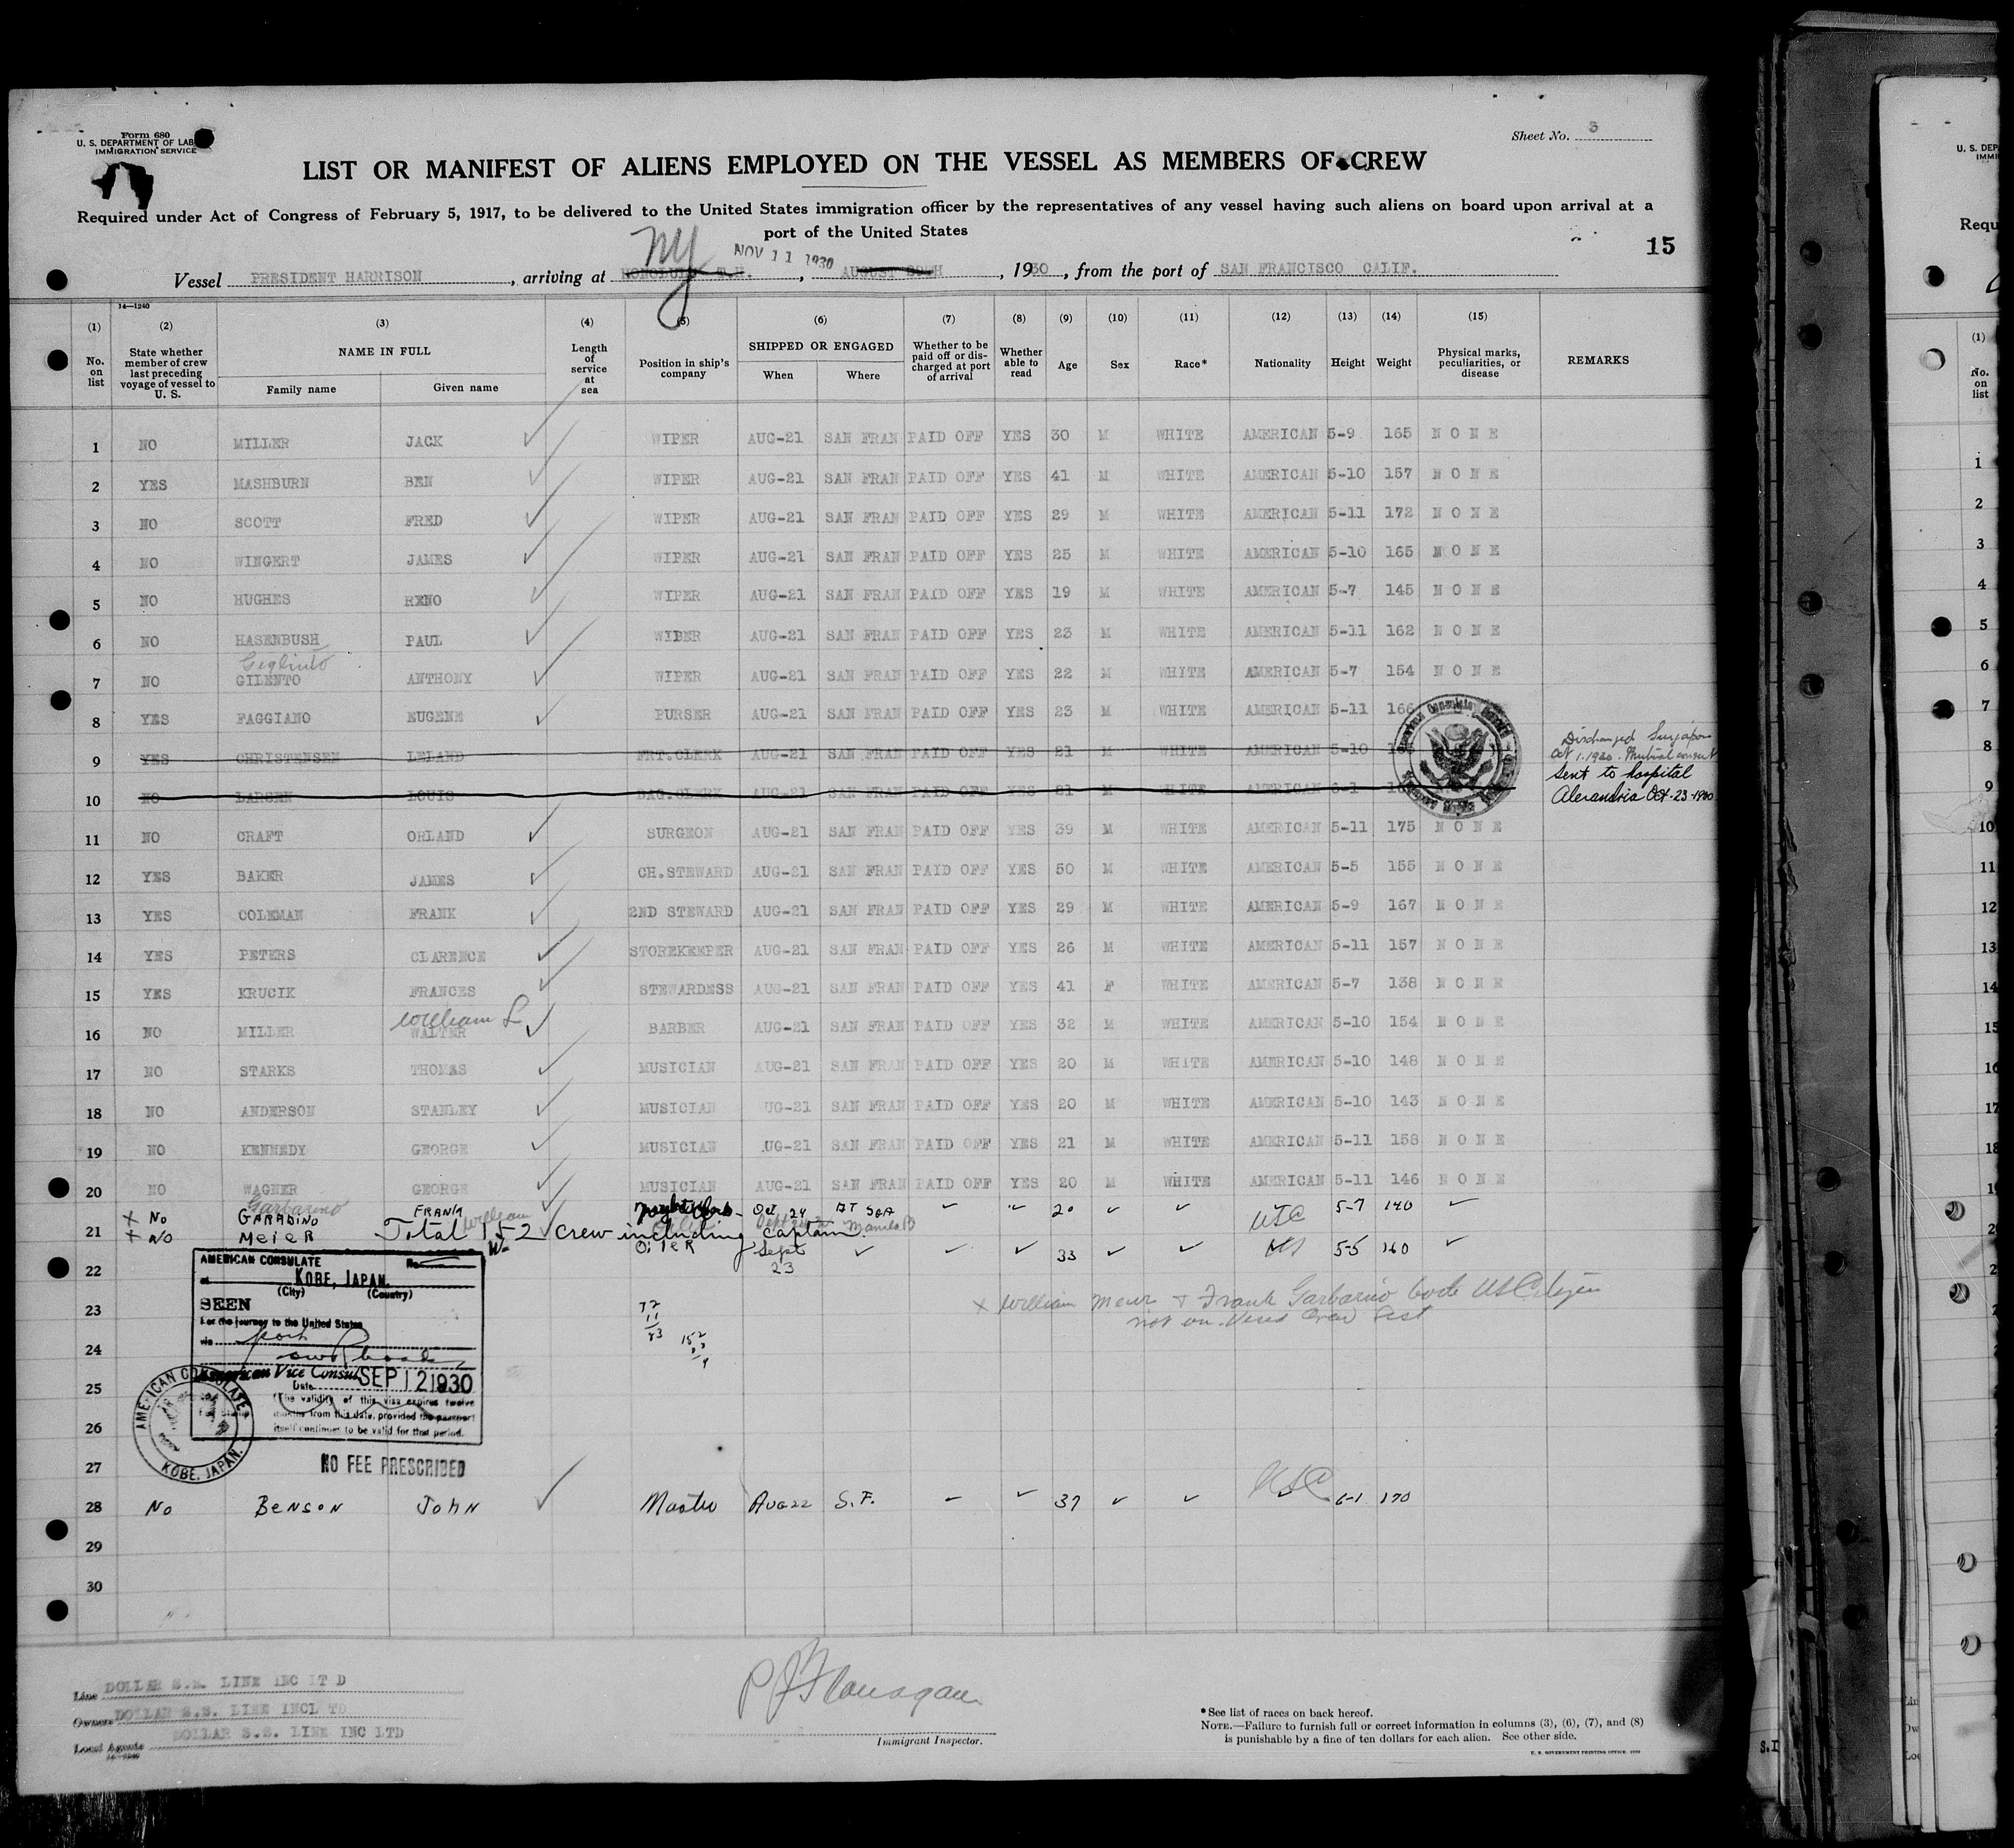 Form 680
U. S. DEPARTMENT OF LAB
IMMIGRATION SERVICE
Sheet No. 3
LIST OR MANIFEST OF ALIENS EMPLOYED ON THE VESSEL AS MEMBERS OF CREW
Required under Act of Congress of February 5, 1917, to be delivered to the United States immigration officer by the representatives of any vessel having such aliens on board upon arrival at a
port of the United States
15
NY NOV 11 1930
Vessel PRESIDENT HARRISON, arriving at HONOLULU T.H., AUGUST H, 1930, from the port of SAN FRANCISCO CALIF.
14—1240
(1) (2) (3) (4) (5) (6) (7) (8) (9) (10) (11) (12) (13) (14) (15)
No. on list State whether member of crew last preceding voyage of vessel to U. S. NAME IN FULL Family name Given name Length of service at sea Position in ship's company SHIPPED OR ENGAGED When Where Whether to be paid off or discharged at port of arrival Whether able to read Age Sex Race* Nationality Height Weight Physical marks, peculiarities, or disease REMARKS
1 NO MILLER JACK WIPER AUG-21 SAN FRAN PAID OFF YES 30 M WHITE AMERICAN 5-9 165 NONE
2 YES MASHBURN BEN WIPER AUG-21 SAN FRAN PAID OFF YES 41 M WHITE AMERICAN 5-10 157 NONE
3 NO SCOTT FRED WIPER AUG-21 SAN FRAN PAID OFF YES 29 M WHITE AMERICAN 5-11 172 NONE
4 NO WINGERT JAMES WIPER AUG-21 SAN FRAN PAID OFF YES 25 M WHITE AMERICAN 5-10 165 NONE
5 NO HUGHES RENO WIPER AUG-21 SAN FRAN PAID OFF YES 19 M WHITE AMERICAN 5-7 145 NONE
6 NO HASENBUSH PAUL WIPER AUG-21 SAN FRAN PAID OFF YES 23 M WHITE AMERICAN 5-11 162 NONE
7 NO GILENTO ANTHONY WIPER AUG-21 SAN FRAN PAID OFF YES 22 M WHITE AMERICAN 5-7 154 NONE
8 YES FAGGIANO EUGENE PURSER AUG-21 SAN FRAN PAID OFF YES 23 M WHITE AMERICAN 5-11 166
9 YES CHRISTENSEN LELAND FRT.CLERK AUG-21 SAN FRAN PAID OFF YES 21 M WHITE AMERICAN 5-10 Discharged Singapore Oct 1.1930. Mutual consent
10 NO LARSEN LOUIS BAG.CLERK AUG-21 SAN FRAN PAID OFF YES 21 M WHITE AMERICAN 6-1 Sent to hospital Alexandria Oct-23-1930
11 NO CRAFT ORLAND SURGEON AUG-21 SAN FRAN PAID OFF YES 39 M WHITE AMERICAN 5-11 175 NONE
12 YES BAKER JAMES CH.STEWARD AUG-21 SAN FRAN PAID OFF YES 50 M WHITE AMERICAN 5-5 155 NONE
13 YES COLEMAN FRANK 2ND STEWARD AUG-21 SAN FRAN PAID OFF YES 29 M WHITE AMERICAN 5-9 167 NONE
14 YES PETERS CLARENCE STOREKEEPER AUG-21 SAN FRAN PAID OFF YES 26 M WHITE AMERICAN 5-11 157 NONE
15 YES KRUCIK FRANCES STEWARDESS AUG-21 SAN FRAN PAID OFF YES 41 F WHITE AMERICAN 5-7 138 NONE
William L
16 NO MILLER WALTER BARBER AUG-21 SAN FRAN PAID OFF YES 32 M WHITE AMERICAN 5-10 154 NONE
17 NO STARKS THOMAS MUSICIAN AUG-21 SAN FRAN PAID OFF YES 20 M WHITE AMERICAN 5-10 148 NONE
18 NO ANDERSON STANLEY MUSICIAN UG-21 SAN FRAN PAID OFF YES 20 M WHITE AMERICAN 5-10 143 NONE
19 NO KENNEDY GEORGE MUSICIAN UG-21 SAN FRAN PAID OFF YES 21 M WHITE AMERICAN 5-11 158 NONE
20 NO WAGNER GEORGE MUSICIAN AUG-21 SAN FRAN PAID OFF YES 20 M WHITE AMERICAN 5-11 146 NONE
Garbarino
x No GARABINO FRANK Oct. 24 AT SEA 20 USC 5-7 140
21 William Total 152 Crew including Captain. Manila
x No MEIER W. OILER Sept 23 33 US 5-5 160
22
23
24
25
26
27
AMERICAN CONSULATE No.
at KOBE, JAPAN.
(City) (Country)
SEEN
For the journey to the United States
via
American Vice Consul
Date SEP 12 1930
(The validity of this visa expires twelve
months from this date, provided the passport
itself continues to be valid for that period.
AMERICAN CONSULATE KOBE, JAPAN.
NO FEE PRESCRIBED
x William Meier + Frank Garbarino both US Citizen
not on Vised Crew List
28 No BENSON JOHN Master AUG 22 S.F. 37 USC 6-1 170
29
30
Line DOLLAR S.S. LINE INC LT D
Owners DOLLAR S.S. LINE INCL TD
Local Agents DOLLAR S.S. LINE INC LTD
P J Flanagan
Immigrant Inspector.
*See list of races on back hereof.
NOTE.—Failure to furnish full or correct information in columns (3), (6), (7), and (8)
is punishable by a fine of ten dollars for each alien. See other side.
U. S. GOVERNMENT PRINTING OFFICE